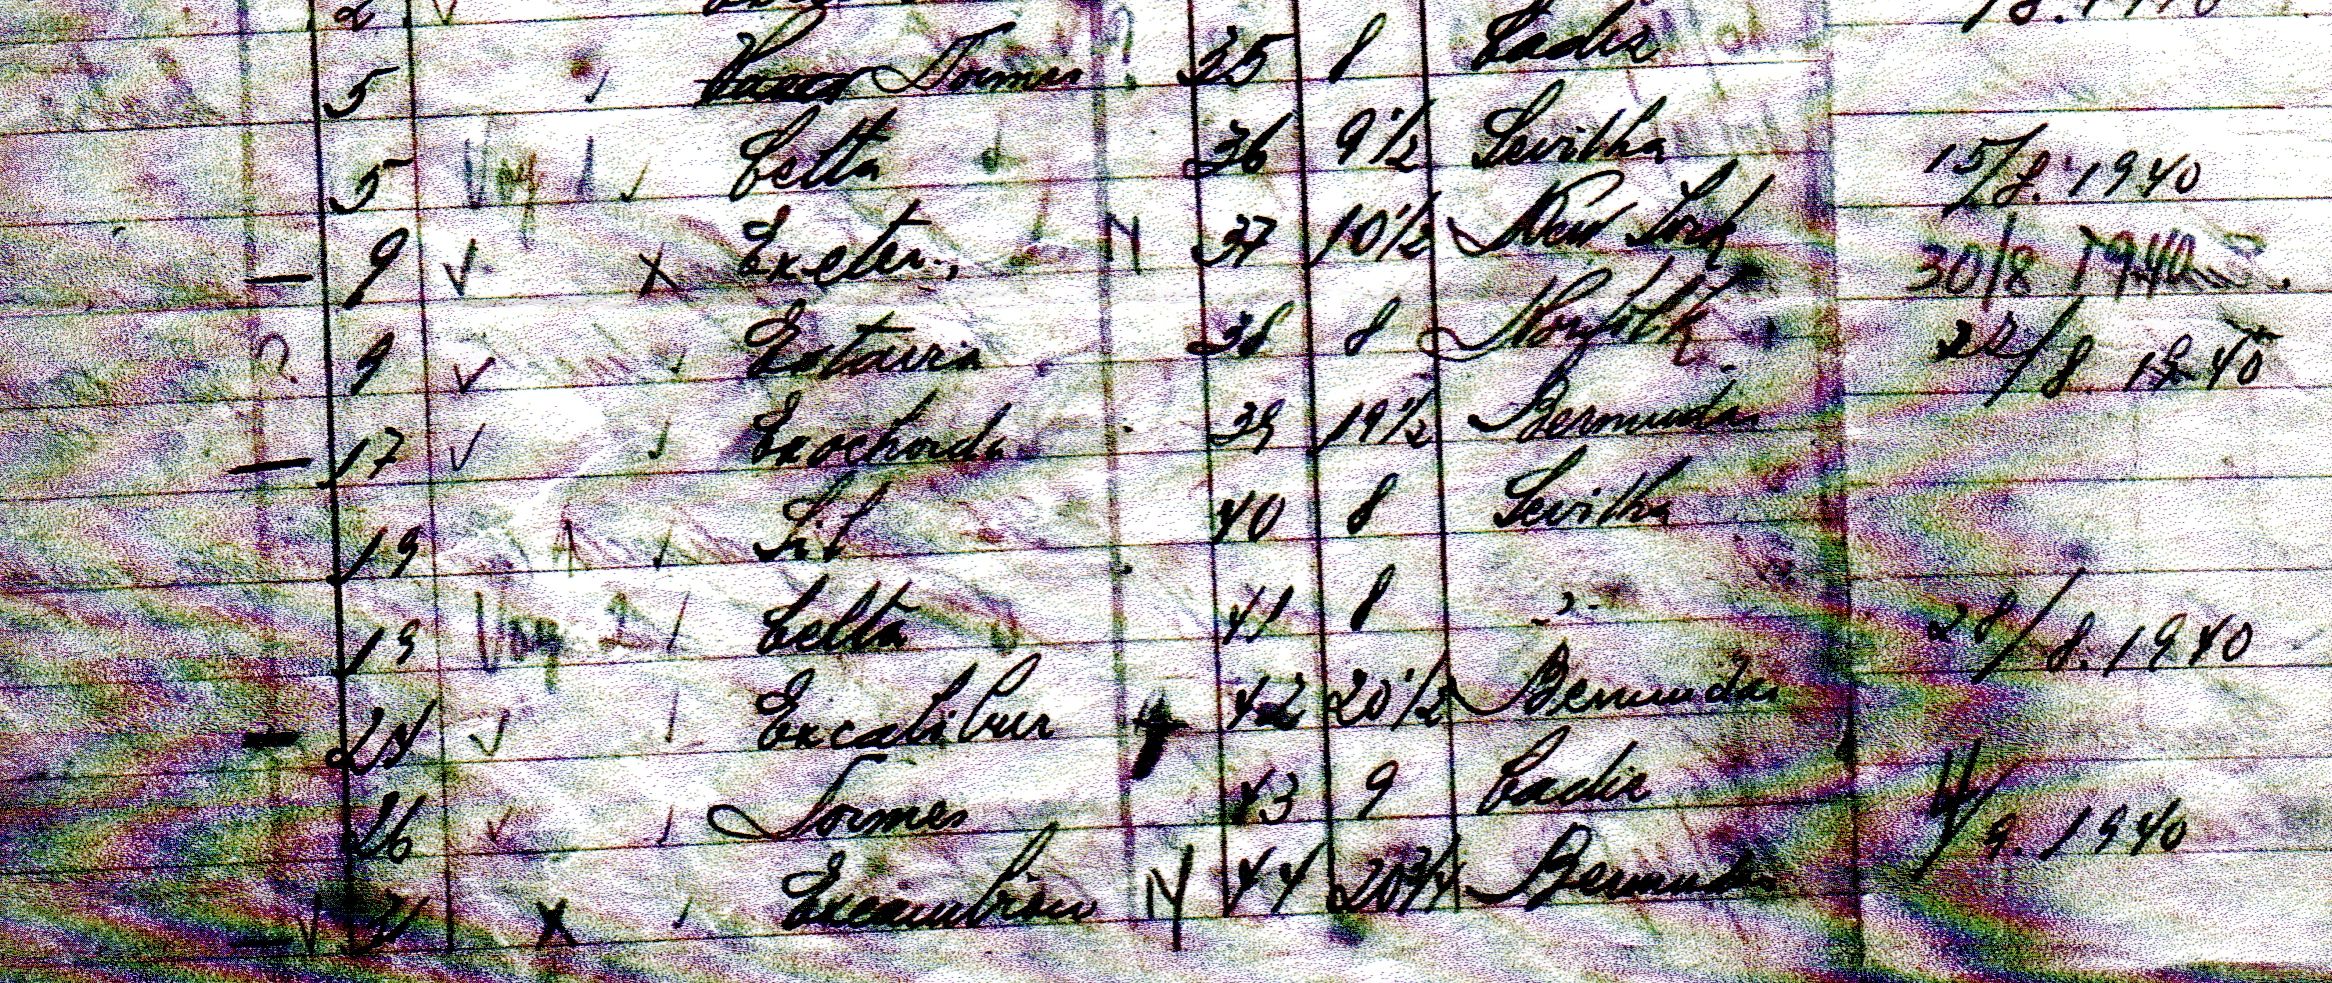 5 Tormes ? 35 8 Cadiz
5 Celta 36 9 1/2 Sevilha 15/8.1940
9 Exeter 37 10 1/2 New York 30/8 1940
9 38 8 Norfolk 22/8 1940
17 Exochorda 39 19 1/2 Bermudas
19 Sil 40 8 Sevilha
19 Celta 41 8 " 28/8.1940
24 Excalibur 42 20 1/2 Bermudas
26 Tormes 43 9 Cadiz 4/9.1940
Excambion N 44 20 3/4 Bermudas